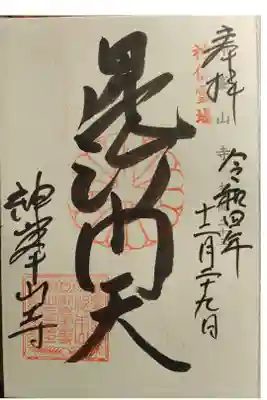 奉拝
令和四年
十二月二十九日
毘沙門天
神峯山寺